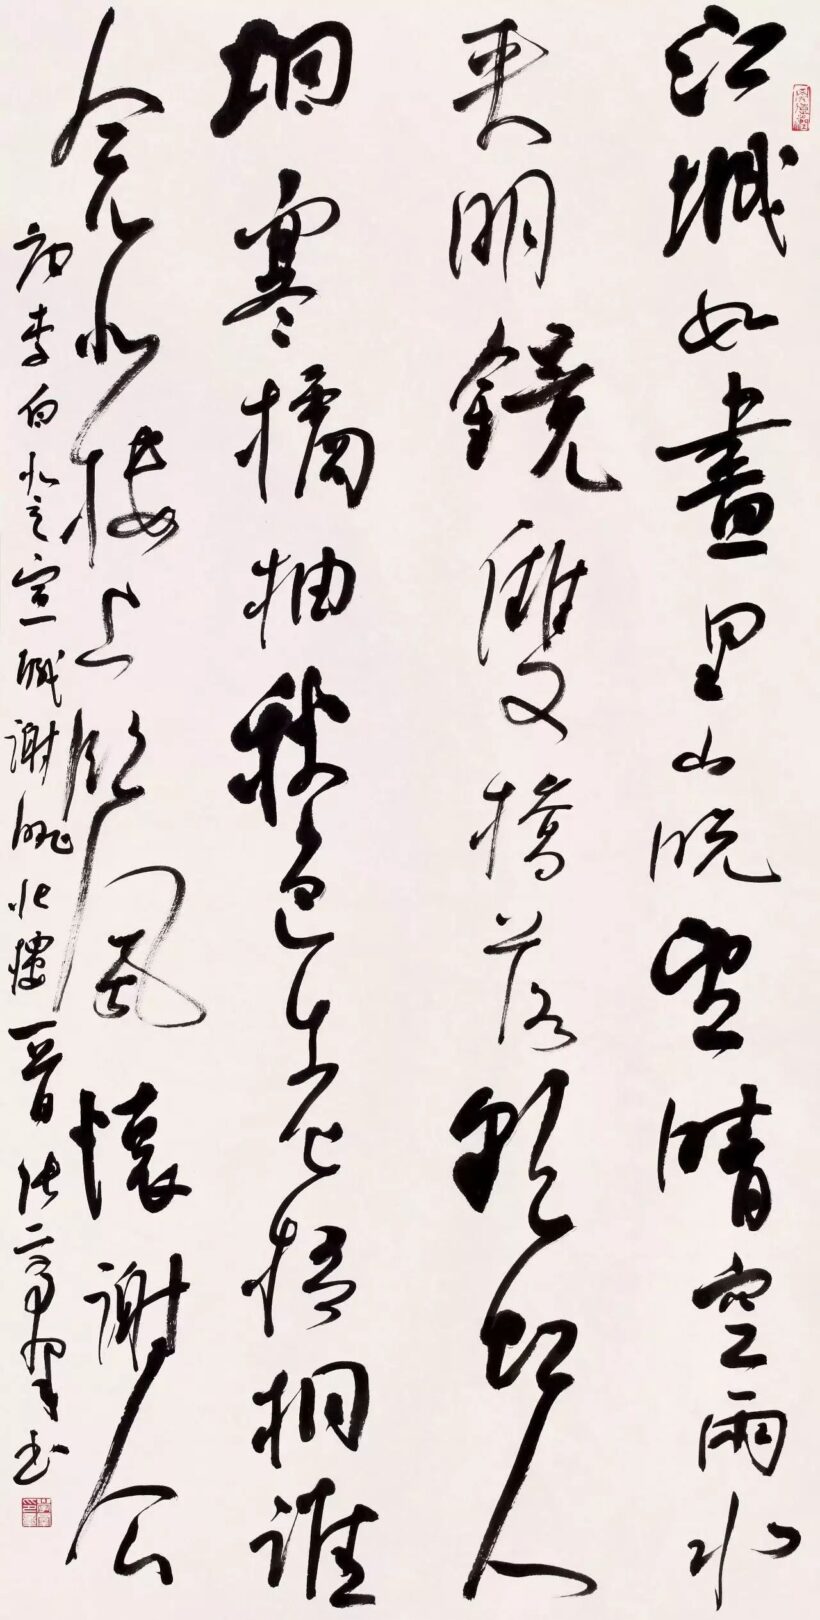 江城如畫里山晓望晴空兩水
夾明鏡雙橋落彩虹人
烟寒橘柚秋色老梧桐誰
念北樓上臨風懷謝公
唐李白秋登宣城謝朓北樓 晋 书